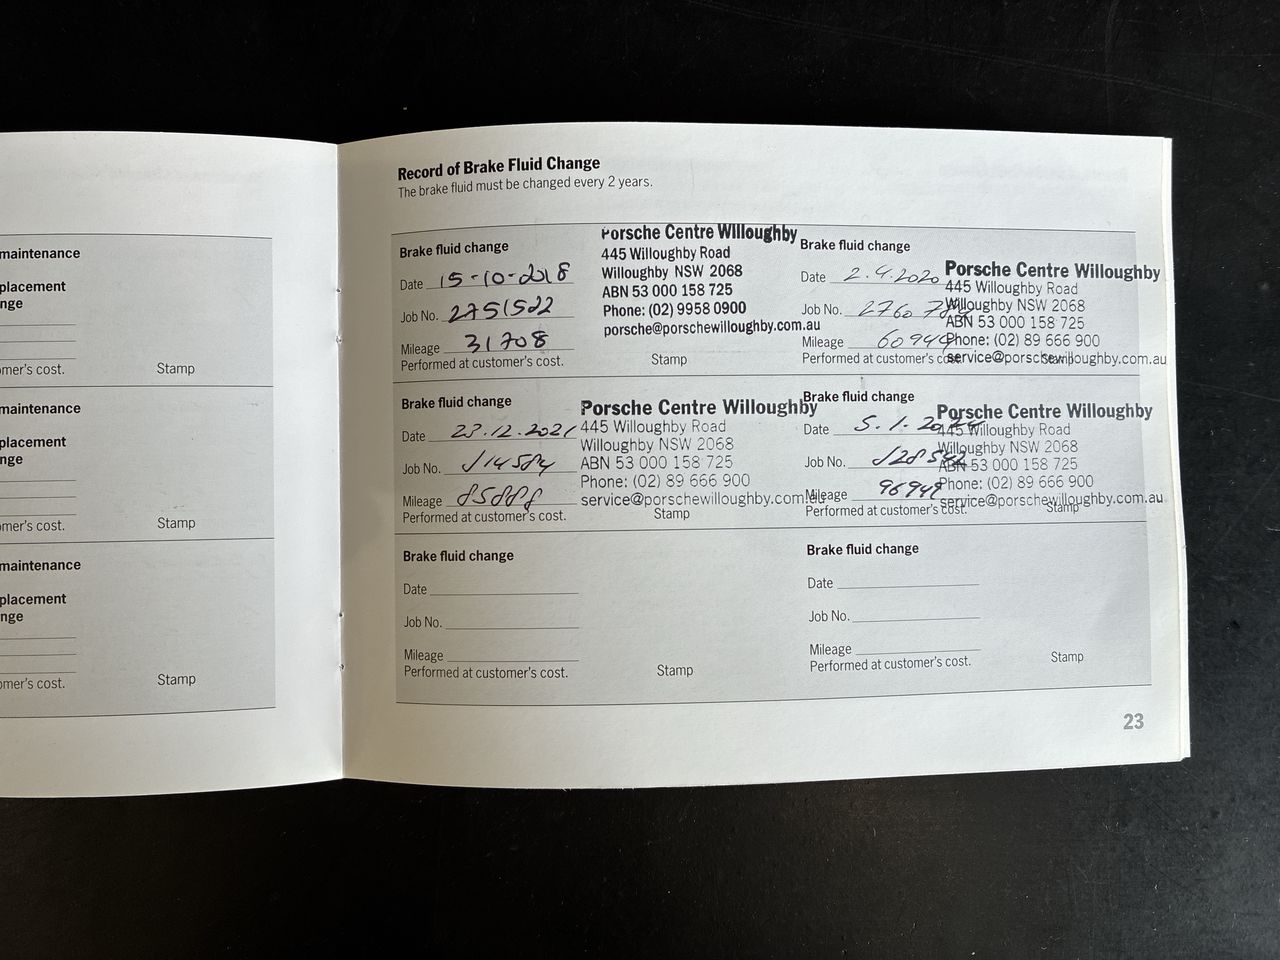 maintenance
placement
nge
omer's cost. Stamp
maintenance
placement
nge
omer's cost. Stamp
maintenance
placement
nge
omer's cost. Stamp
Record of Brake Fluid Change
The brake fluid must be changed every 2 years.
Brake fluid change
Date 15-10-2018
Job No. 2751522
Mileage 31708
Performed at customer's cost.
Porsche Centre Willoughby
445 Willoughby Road
Willoughby NSW 2068
ABN 53 000 158 725
Phone: (02) 9958 0900
porsche@porschewilloughby.com.au
Stamp
Brake fluid change
Date 2.4.2020
Job No.
Mileage
Performed at customer's cost.
Porsche Centre Willoughby
445 Willoughby Road
Willoughby NSW 2068
ABN 53 000 158 725
Phone: (02) 89 666 900
service@porschewilloughby.com.au
Stamp
Brake fluid change
Date 23.12.2021
Job No. J14584
Mileage 85888
Performed at customer's cost.
Porsche Centre Willoughby
445 Willoughby Road
Willoughby NSW 2068
ABN 53 000 158 725
Phone: (02) 89 666 900
service@porschewilloughby.com.au
Stamp
Brake fluid change
Date 5.1.2024
Job No. J28542
Mileage 96949
Performed at customer's cost.
Porsche Centre Willoughby
445 Willoughby Road
Willoughby NSW 2068
ABN 53 000 158 725
Phone: (02) 89 666 900
service@porschewilloughby.com.au
Stamp
Brake fluid change
Date
Job No.
Mileage
Performed at customer's cost. Stamp
Brake fluid change
Date
Job No.
Mileage
Performed at customer's cost. Stamp
23